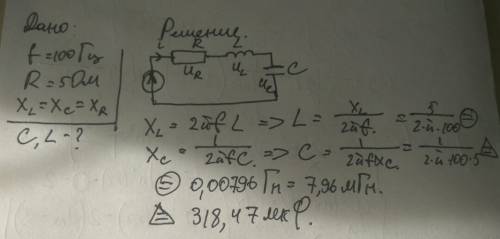 Дано:
f = 100 Гц
R = 5 Ом
X_L = X_C = X_R
C, L - ?
Решение.
i R L
U_R U_L U_C C
X_L = 2πf L => L = X_L / 2πf. = 5 / 2·π·100 ⊜
X_C = 1 / 2πfC => C = 1 / 2πfX_C = 1 / 2·π·100·5 ◬
⊜ 0,00796 Гн = 7,96 мГн.
◬ 318,47 мкФ.